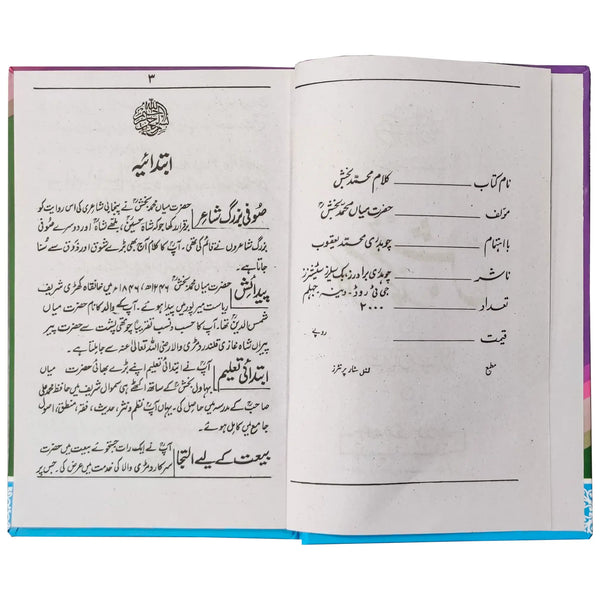 نام کتاب ــــــــ کلام محمد بخشؒ
مؤلف ــــــــ حضرت میاں محمد بخشؒ
باہتمام ــــــــ چوہدری محمد یعقوب
ناشر ــــــــ چوہدری برادرز، بک سیلرز سٹیشنرز
جی ٹی روڈ۔ دینہ جہلم
تعداد ــــــــ ۲۰۰۰
قیمت ــــــــ روپے
مطبع پرنٹرز
۳
ابتدائیہ
صُوفی بزرگ شاعر حضرت میاں محمد بخشؒ نے پنجابی شاعری کی اس روایت کو
برقرار رکھا جو کہ شاہ حسینؒ، بلھے شاہؒ اور دوسرے صُوفی
بزرگ شاعروں نے قائم کی تھی۔ آپؒ کا کلام آج بھی بڑے شوق اور ذوق سے سُنا
جاتا ہے۔
پیدائش حضرت میاں محمد بخشؒ ۱۲۴۶ھ، ۱۸۴۶ء میں خانقاہ کھڑی شریف
ریاست میرپور میں پیدا ہوئے۔ آپ کے والد کا نام حضرت میاں
شمس الدینؒ تھا۔ آپؒ کا حسب و نسب تقریباً چوتھی پشت سے حضرت پیر
پیراں شاہ غازی قلندر دمڑی والا رضی اللہ تعالیٰ عنہ سے جا ملتا ہے۔
ابتدائی تعلیم آپؒ نے ابتدائی تعلیم اپنے بڑے بھائی حضرت میاں
بہاول بخشؒ کے ساتھ اکٹھے ہی سموال شریف میں حافظ محمد علی
صاحبؒ کے مدرسہ میں حاصل کی۔ یہاں آپؒ نظم و نثر، حدیث، فقہ، منطق، اصول
جامع میں کامل ہوئے۔
بیعت کے لیے التجا آپؒ نے ایک رات جستجوئے بیعت میں حضرت
سرکار دمڑی والا کی خدمت میں عرض کی۔ جس پر